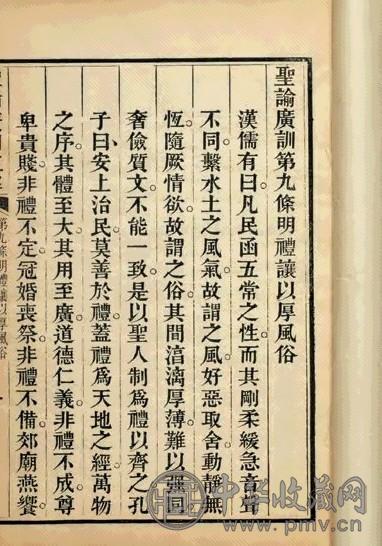 聖諭廣訓第九條明禮讓以厚風俗
漢儒有曰凡民函五常之性而其剛柔緩急音聲
不同繫水土之風氣故謂之風好惡取舍動靜無
恆隨厥情欲故謂之俗其間淳漓厚薄難以強同
奢儉質文不能一致是以聖人制為禮以齊之孔
子曰安上治民莫善於禮蓋禮為天地之經萬物
之序其體至大其用至廣道德仁義非禮不成尊
卑貴賤非禮不定冠婚喪祭非禮不備郊廟燕饗
第九條明禮讓以厚風俗
中华收藏网
www.pmv.cn